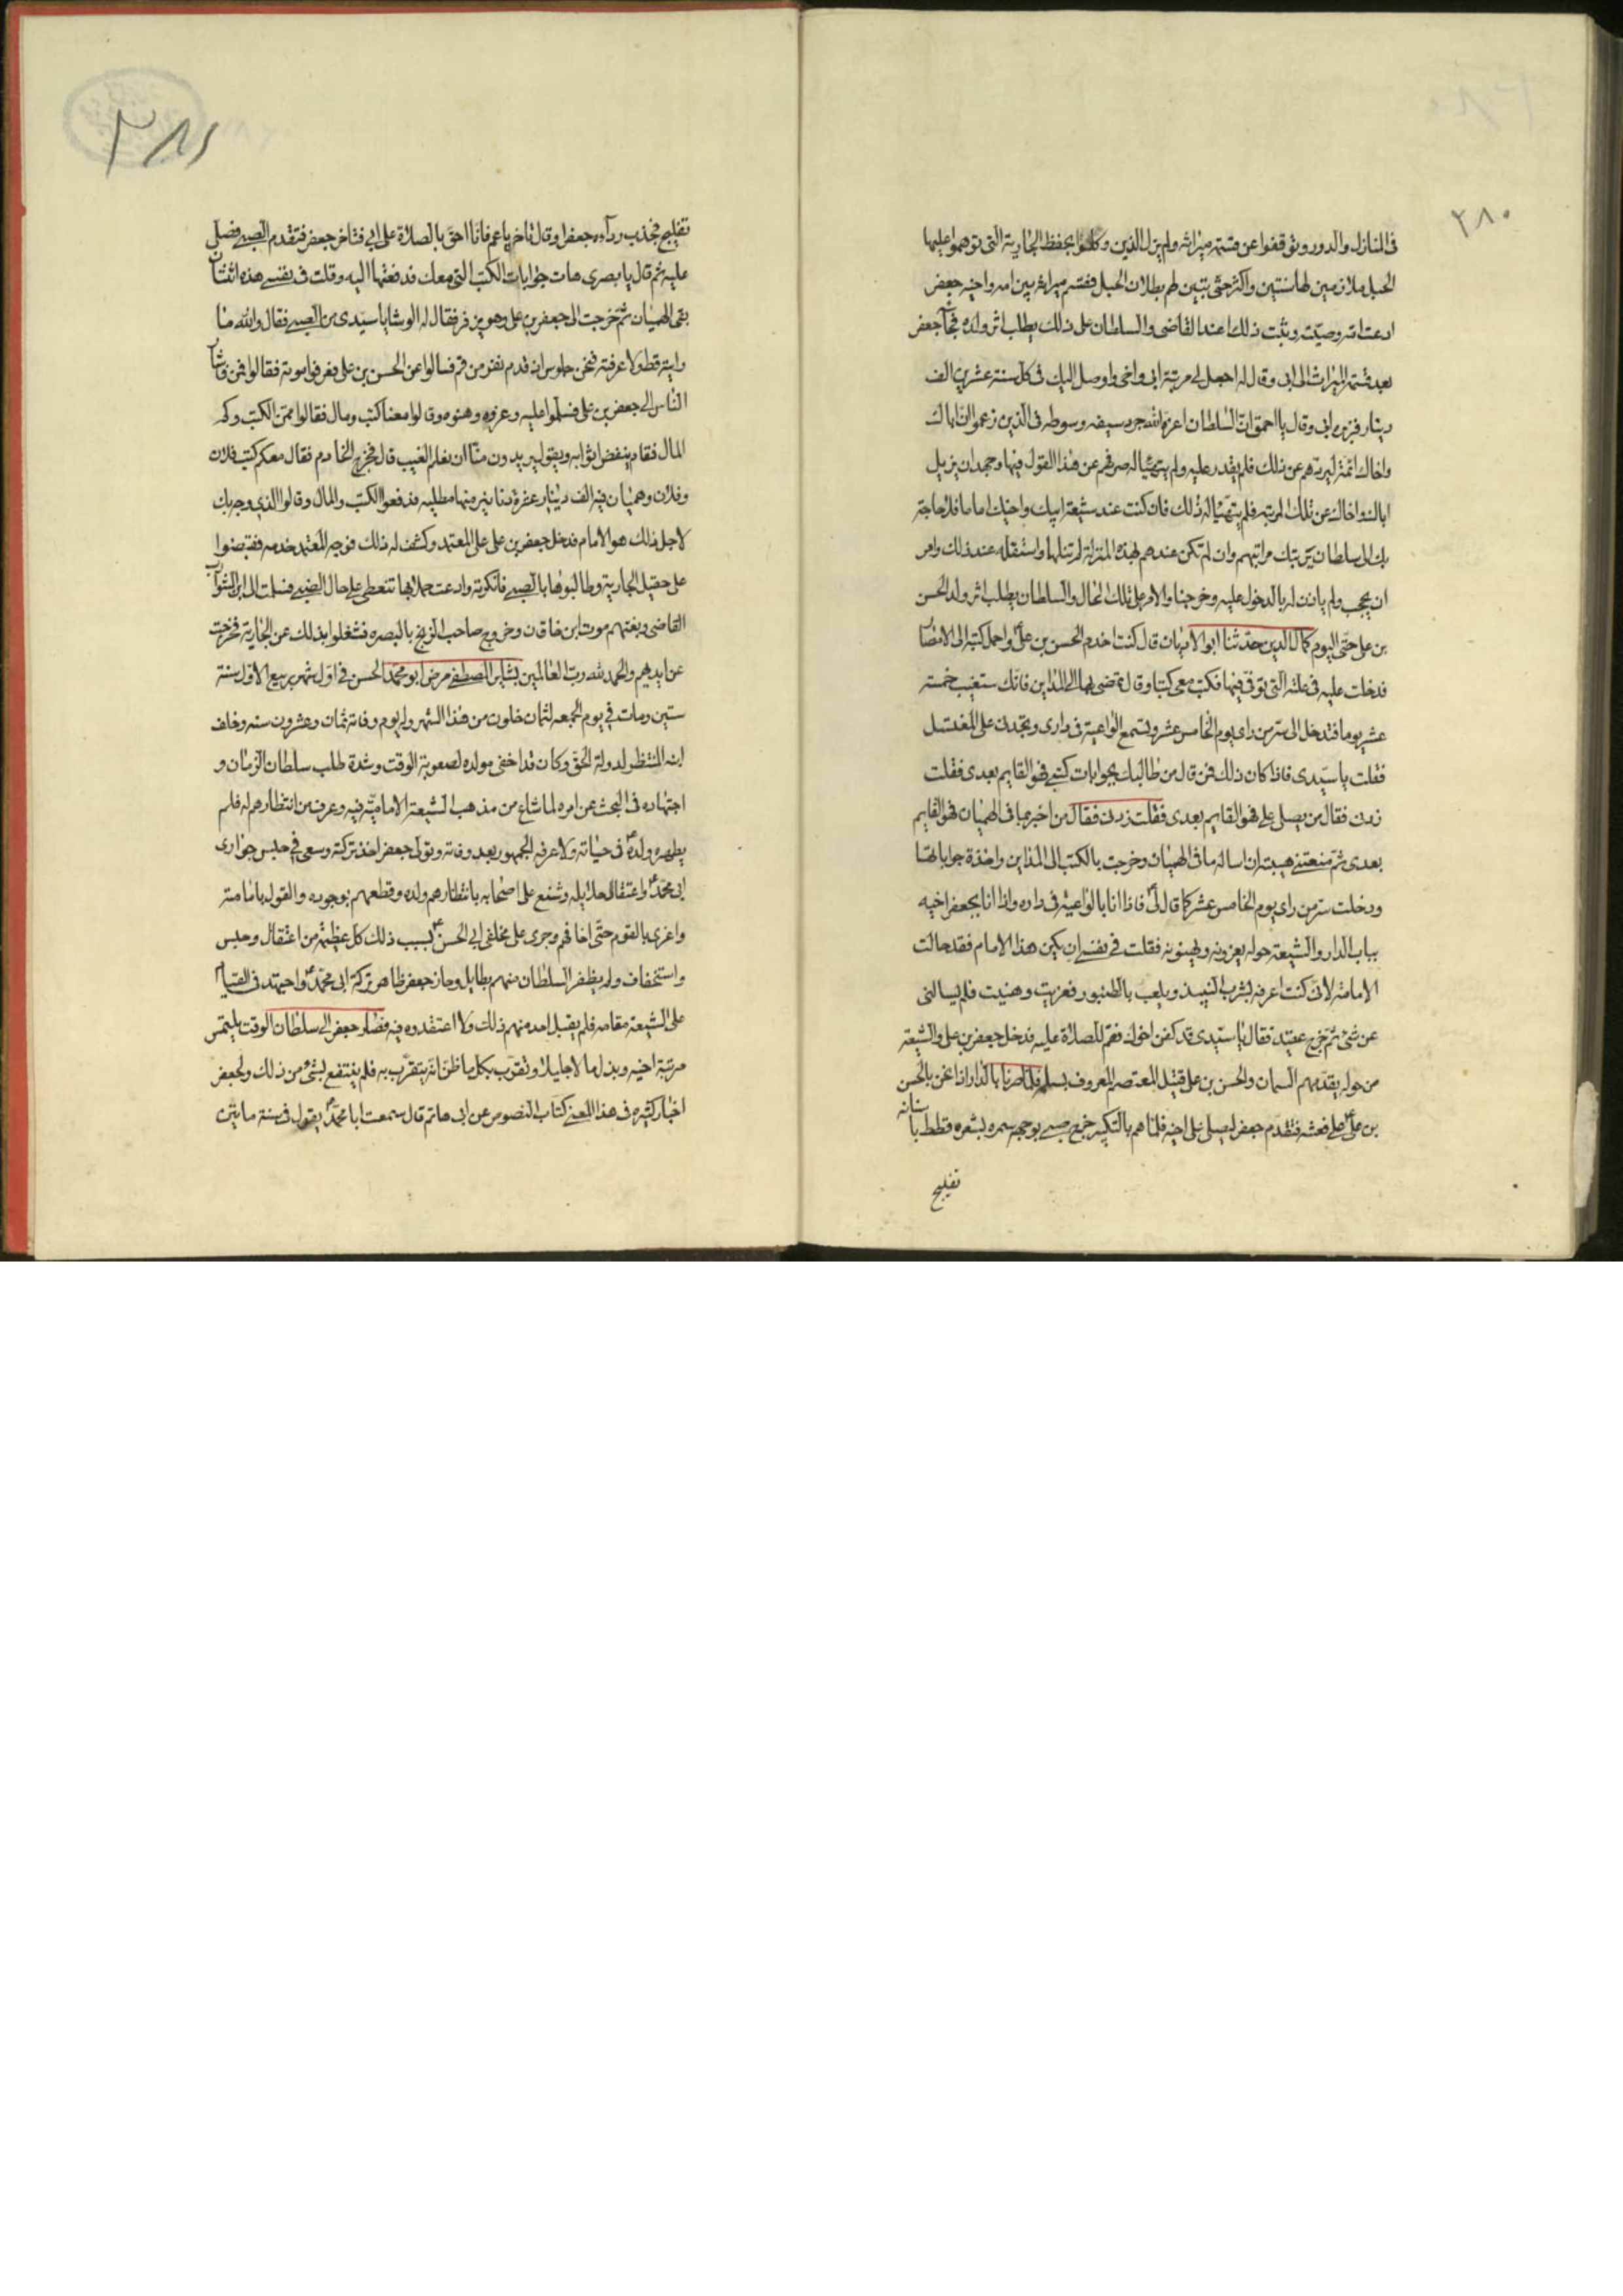 ٢٨٠
فى المنازل والدور وتوقفوا عن قسمة ميراثه ولم يزل الذين وكلوا بحفظ الجارية التى توهموا عليها
الحبل ملازمين لها سنتين واكثر حتى يتبين لهم بطلان الحبل فقسم ميراثه بين امه واخيه جعفر
ادعت امه وصيته وثبت ذلك عند القاضى والسلطان على ذلك يطلب اثر ولده فجاء جعفر
بعد قسمة الميراث الى ابى وقال له اجعل لى مرتبة ابى واخى واوصل اليك فى كل سنة عشرين الف
دينار فزبره ابى وقال يا احمق ان السلطان اعزه الله جرد سيفه وسوطه فى الذين زعموا ان اباك
واخاك ائمة ليردهم عن ذلك فلم يقدر عليه ولم يتهيا له صرفهم عن هذا القول فيها وجهد ان يزيل
اباك واخاك عن تلك المرتبه فلم يتهيا له ذلك فان كنت عند شيعة ابيك واخيك اماما فلا حاجة
بك الى سلطان يرتبك مراتبهم وان لم تكن عندهم بهذه المنزلة لم تنلها واستقله عند ذلك وامر
ان يحجب ولم ياذن له بالدخول عليه وخرجنا والامر على تلك الحال والسلطان يطلب اثر ولد الحسن
بن على حتى اليوم كمال الدين حدثنا ابو الاديان قال كنت اخدم الحسن بن على واحمل كتبه الى الامصار
فدخلت عليه فى علته التى توفى فيها فكتب معى كتبا وقال تمضى بها الى المداين فانك ستغيب خمسة
عشر يوما فتدخل الى سر من راى يوم الخامس عشر وتسمع الواعية فى دارى وتجدنى على المغتسل
فقلت يا سيدى فاذا كان ذلك فمن قال من طالبك بجوابات كتبى فهو القايم بعدى فقلت
زدنى فقال من يصلى على فهو القايم بعدى فقلت زدنى فقال من اخبر بما فى الهميان فهو القايم
بعدى ثم منعتنى هيبته ان اساله ما فى الهميان وخرجت بالكتب الى المداين واخذت جواباتها
ودخلت سر من راى يوم الخامس عشر كما قال لى فاذا انا بالواعية فى داره واذا انا بجعفر اخيه
بباب الدار والشيعة حوله يعزونه ويهنونه فقلت فى نفسى ان يكن هذا الامام فقد حالت
الامامة لانى كنت اعرفه بشرب النبيذ ويلعب بالطنبور فعزيت وهنيت فلم يسالنى
عن شئ ثم خرج عقيد فقال يا سيدى قد كفن اخوك فقم للصلاة عليه فدخل جعفر بن على والشيعة
من حوله يقدمهم السمان والحسن بن على قتيل المعتصم المعروف بسلمه فلما صرنا بالدار اذا نحن بالحسن
بن على على نعشه فتقدم جعفر ليصلى على اخيه فلما هم بالتكبير خرج صبى بوجهه سمره بشعره قطط باسنانه
تفليج
٢٨١
تفليج فجذب رداء جعفر وقال تاخر يا عم فانا احق بالصلاة على ابى فتاخر جعفر فتقدم الصبى فصلى
عليه ثم قال يا بصرى هات جوابات الكتب التى معك فدفعتها اليه وقلت فى نفسى هذه اثنتان
بقى الهميان ثم خرجت الى جعفر بن على وهو يزفر فقال له الوشا يا سيدى من الصبى فقال والله ما
رايته قط ولا عرفته فنحن جلوس اذ قدم نفر من قم فسالوا عن الحسن بن على فعرفوا موته فقالوا فمن فاشار
الناس الى جعفر بن على فسلموا عليه وعزوه وهنوه وقالوا معنا كتب ومال فقالوا ممن الكتب وكم
المال فقام ينفض اثوابه ويقول يريدون منا ان نعلم الغيب قال فخرج الخادم فقال معكم كتب فلان
وفلان وهميان فيه الف دينار عشرة دنانير منها مطليه فدفعوا الكتب والمال وقالوا الذى وجه بك
لاجل ذلك هو الامام فدخل جعفر بن على على المعتمد وكشف له ذلك فوجه المعتمد خدمه فقبضوا
على صقيل الجارية وطالبوها بالصبى فانكرته وادعت حملا بها لتغطى على حال الصبى فسلمت الى ابن الشوارب
القاضى وبغتهم موت ابن خاقان وخروج صاحب الزنج بالبصره فشغلوا بذلك عن الجارية فخرجت
عن ايديهم والحمد لله رب العالمين بشاير المصطفى مرض ابو محمد الحسن فى اول شهر ربيع الاول سنة
ستين ومات فى يوم الجمعه لثمان خلون من هذا الشهر وله يوم وفاته ثمان وعشرون سنه وخلف
ابنه المنتظر لدولة الحق وكان قد اخفى مولده لصعوبة الوقت وشدة طلب سلطان الزمان و
اجتهاده فى البحث عن امره لما شاع من مذهب الشيعة الامامية فيه وعرف من انتظارهم له فلم
يظهره ولده فى حياته ولا عرفه الجمهور بعد وفاته وتولى جعفر اخذ تركته وسعى فى حبس جوارى
ابى محمد واعتقال حلايله وشنع على اصحابه بانتظارهم ولده وقطعهم بوجوده والقول بامامته
واغرى بالقوم حتى اخافهم وجرى على مخلفى ابى الحسن بسبب ذلك كل عظيمة من اعتقال وحبس
واستخفاف ولم يظفر السلطان منهم بطايل وحاز جعفر ظاهر تركة ابى محمد واجتهد فى القيام
على الشيعة مقامه فلم يقبل احد منهم ذلك ولا اعتقدوه فيه فصار جعفر الى سلطان الوقت يلتمس
مرتبة اخيه وبذل مالا جليلا وتقرب بكل ما ظن انه يتقرب به فلم ينتفع بشئ من ذلك ولجعفر
اخبار كثيره فى هذا المعنى كتاب النصوص عن ابى هاتم قال سمعت ابا محمد يقول فى سنة مايتين